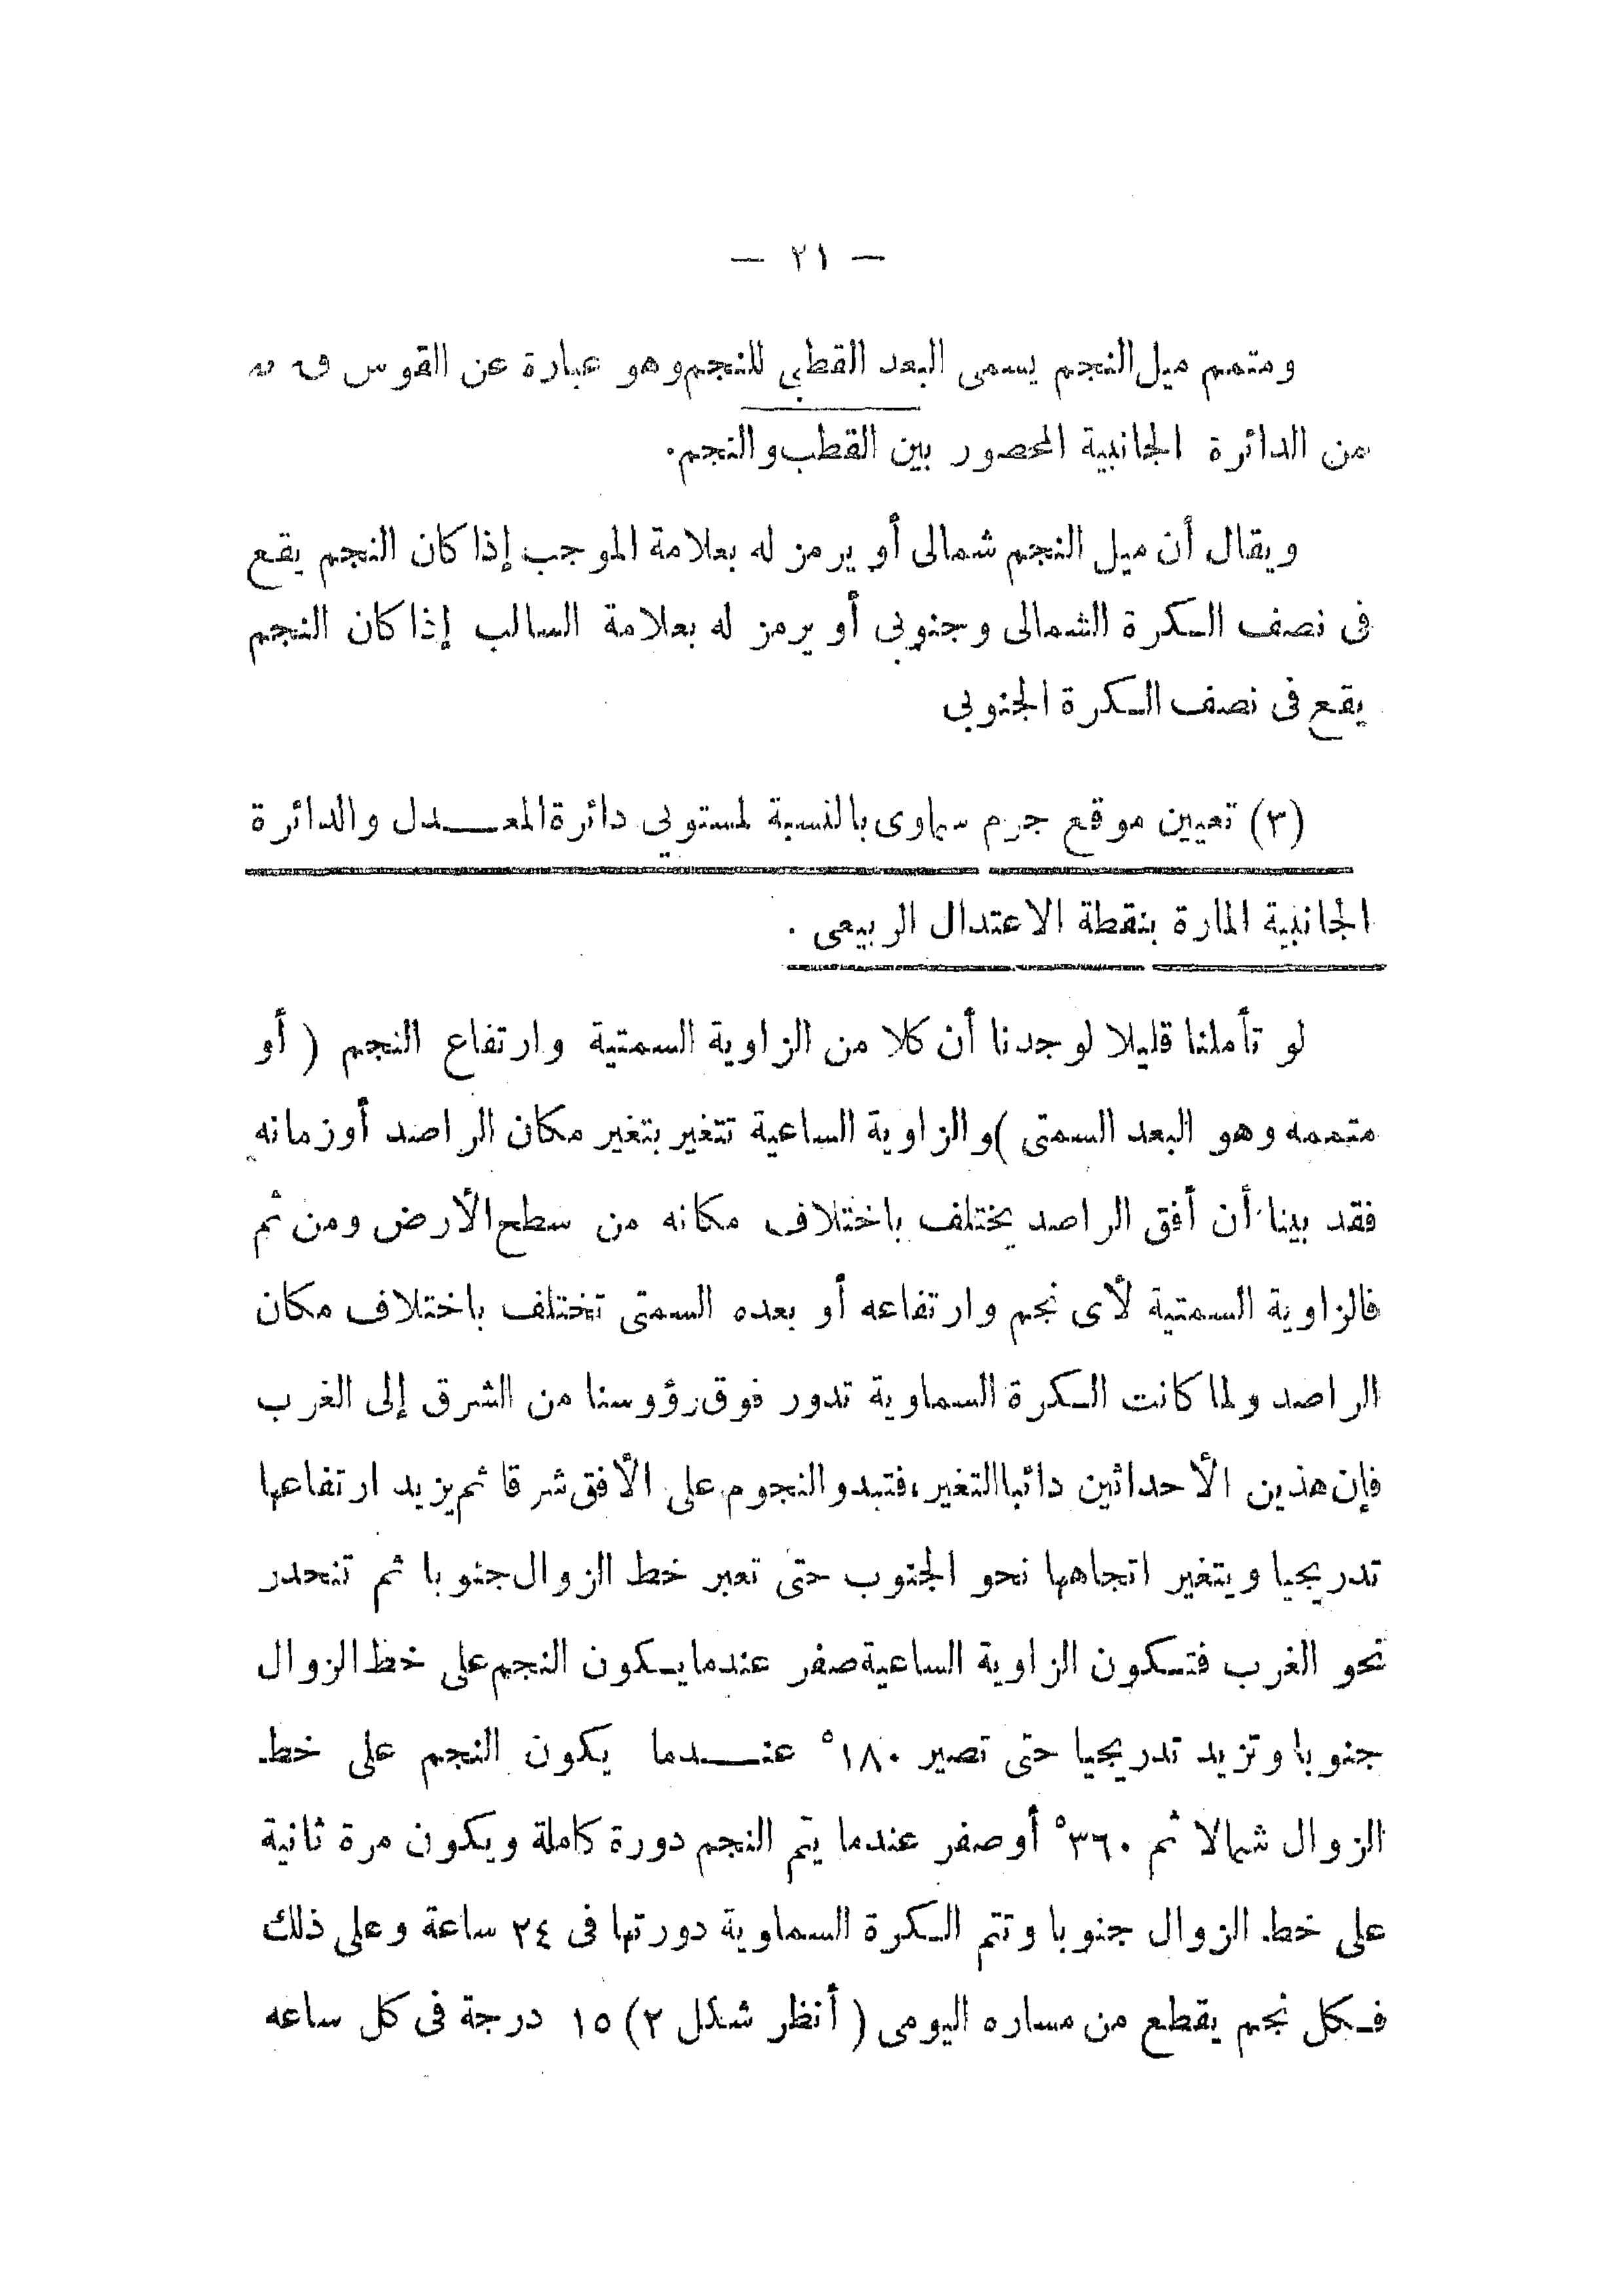 — ٢١ —
ومتمم ميل النجم يسمى البعد القطبي للنجم وهو عبارة عن القوس ق ن
من الدائرة الجانبية المحصور بين القطب والنجم.
ويقال أن ميل النجم شمالى أو يرمز له بعلامة الموجب إذا كان النجم يقع
فى نصف الكرة الشمالى وجنوبى أو يرمز له بعلامة السالب إذا كان النجم
يقع فى نصف الكرة الجنوبى
(٣) تعيين موقع جرم سماوى بالنسبة لمستوى دائرة المعدل والدائرة
الجانبية المارة بنقطة الاعتدال الربيعى .
لو تأملنا قليلا لوجدنا أن كلا من الزاوية السمتية وارتفاع النجم ( أو
متممه وهو البعد السمتى ) والزاوية الساعية تتغير بتغير مكان الراصد أو زمانه
فقد بينا أن أفق الراصد يختلف باختلاف مكانه من سطح الأرض ومن ثم
فالزاوية السمتية لأى نجم وارتفاعه أو بعده السمتى تختلف باختلاف مكان
الراصد ولما كانت الكرة السماوية تدور فوق رؤوسنا من الشرق إلى الغرب
فإن هذين الأحداثين دائبا التغير، فتبدو النجوم على الأفق شرقا ثم يزيد ارتفاعها
تدريجيا ويتغير اتجاهها نحو الجنوب حتى تعبر خط الزوال جنوبا ثم تنحدر
نحو الغرب فتكون الزاوية الساعية صفر عندما يكون النجم على خط الزوال
جنوبا وتزيد تدريجيا حتى تصير ١٨٠° عندما يكون النجم على خط
الزوال شمالا ثم ٣٦٠° أو صفر عندما يتم النجم دورة كاملة ويكون مرة ثانية
على خط الزوال جنوبا وتتم الكرة السماوية دورتها فى ٢٤ ساعة وعلى ذلك
فكل نجم يقطع من مساره اليومى ( أنظر شكل ٢ ) ١٥ درجة فى كل ساعه